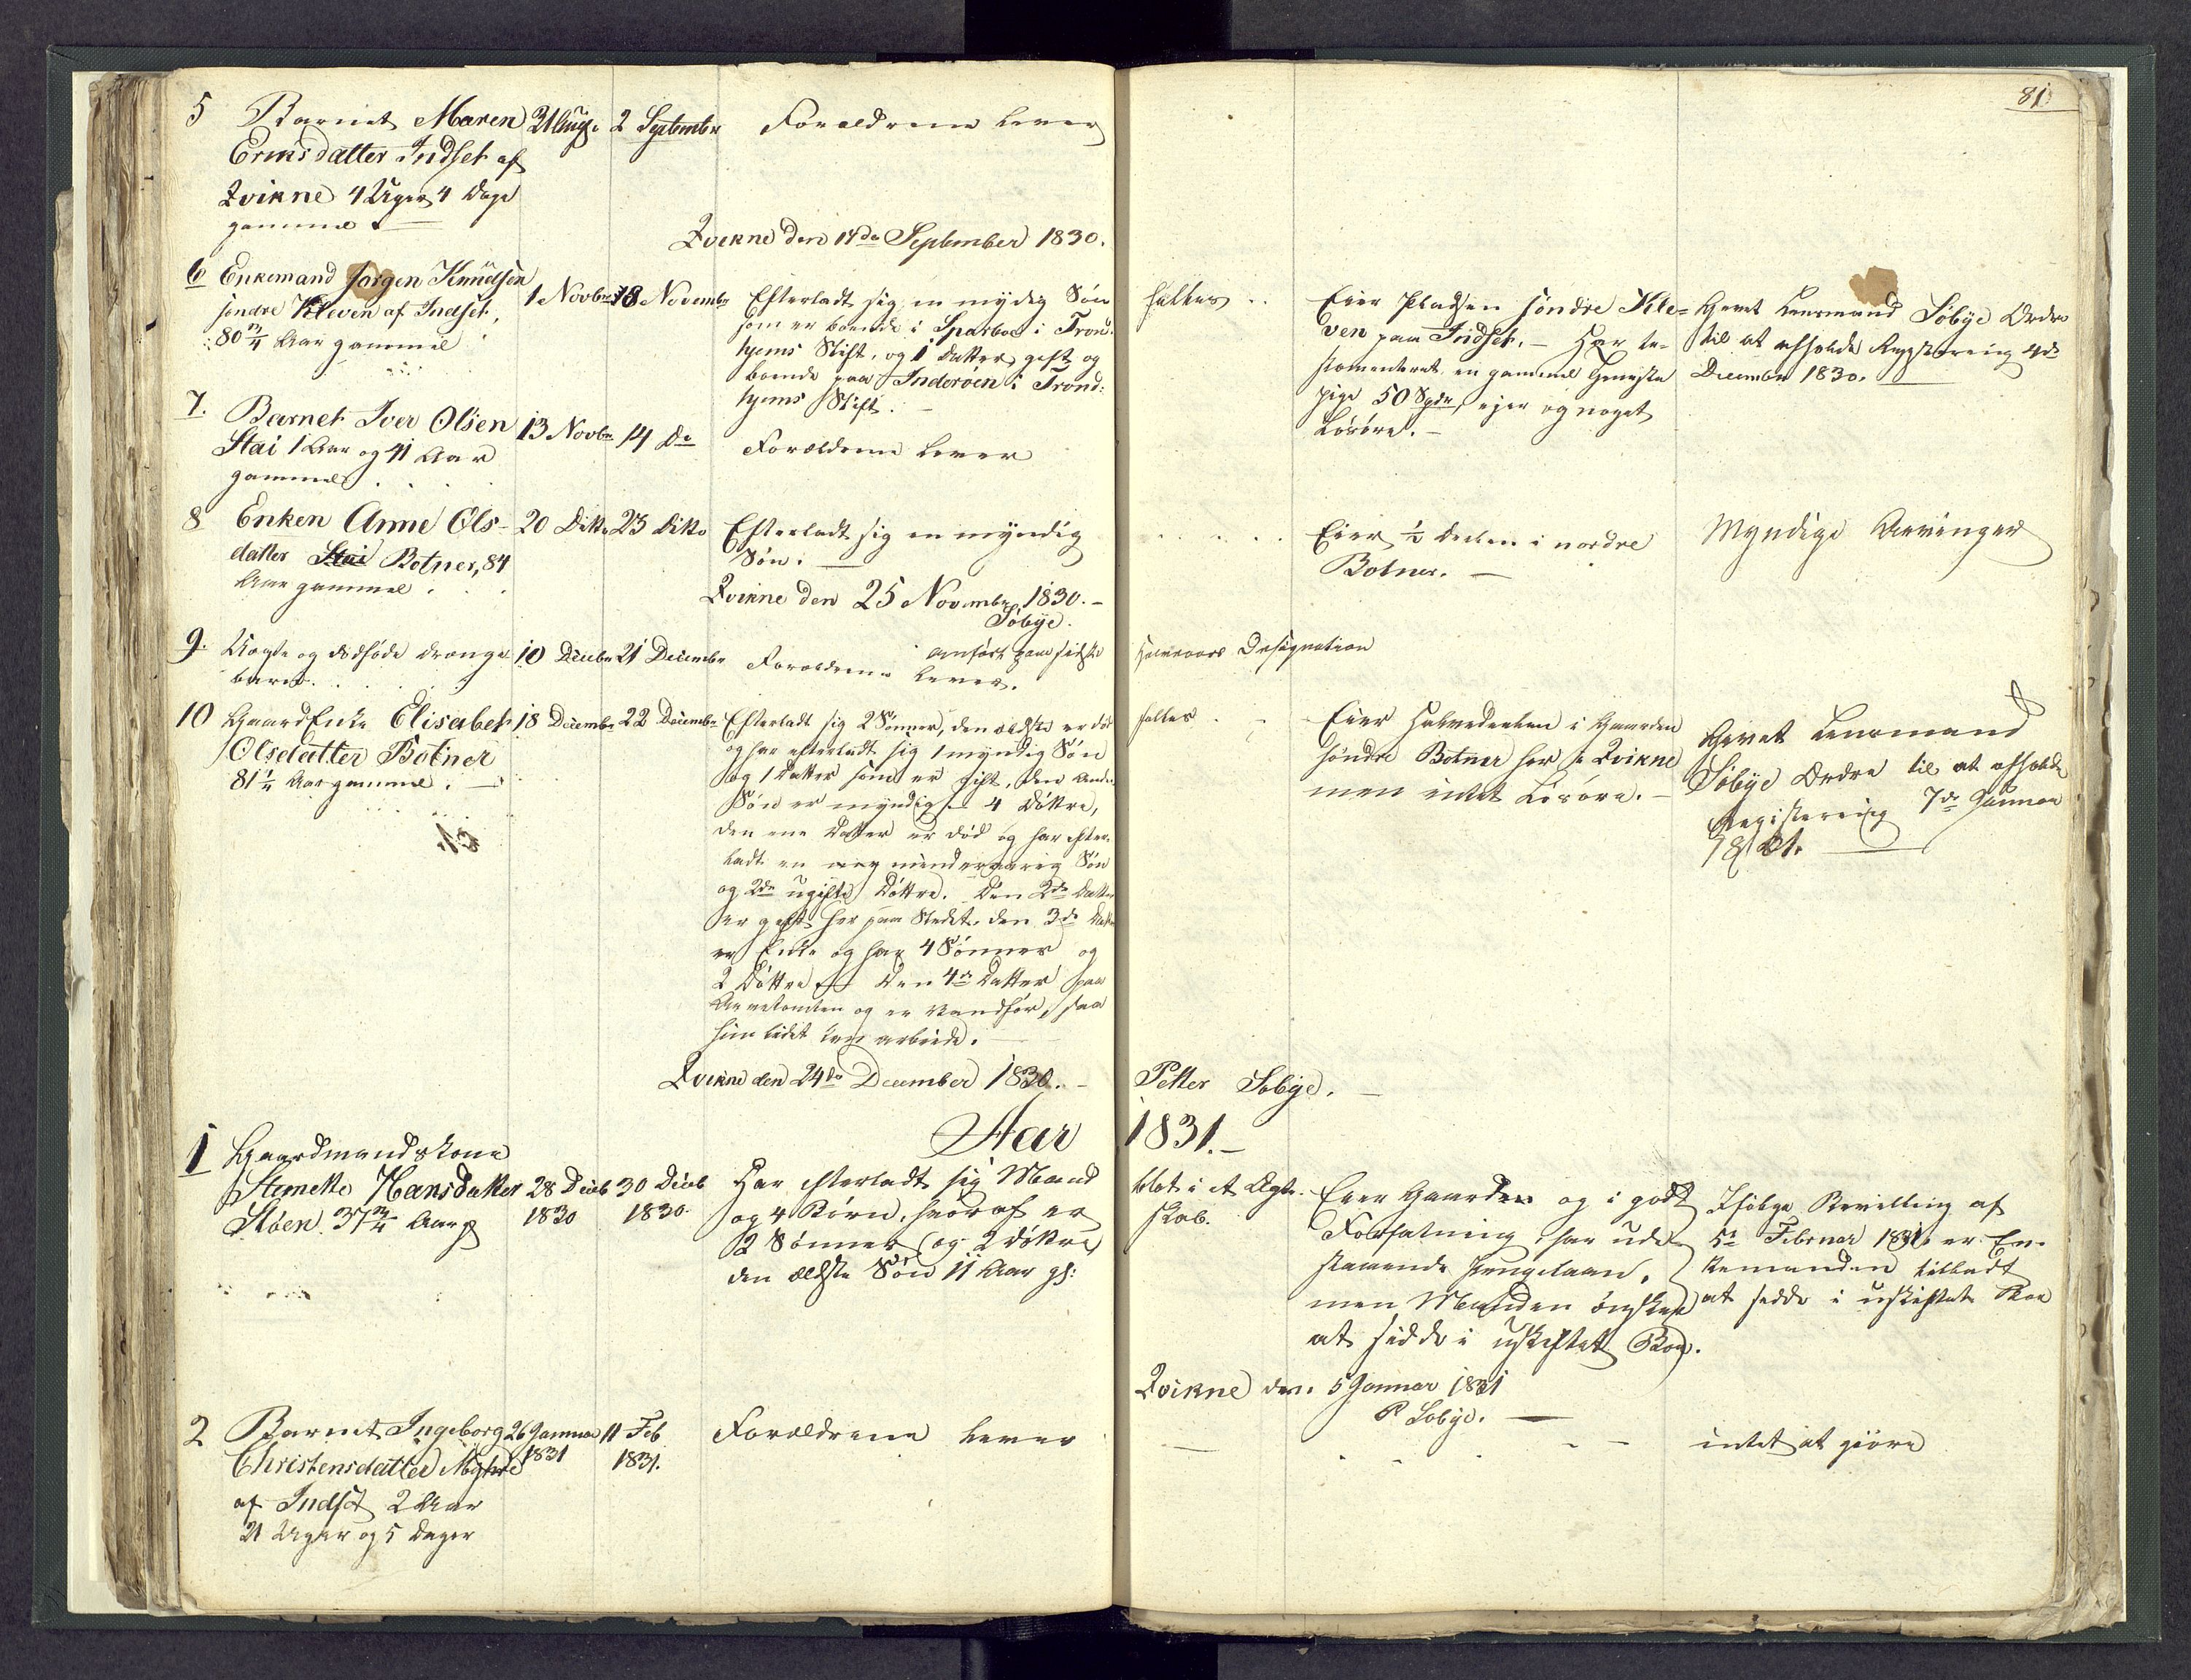 81
5 Barnet Maren 31 Aug. 2 Septembr Forældrene lever
Ericsdatter Indset af
Qvikne 4 Uger 4 Dage
gammel
Qvikne den 14de September 1830.
6 Enkemand Jørgen Knudsen
søndre Kleven af Indset,
80 3/4 Aar gammel
1 Novbr 18 Novembr
Efterladt sig en myndig Søn
som er boende i Sparboe i Tron-
hjems Stift, og 1 Datter gift og
boende paa Inderøen i Trond-
hjems Stift.
fælles
Eier Pladsen søndre Kle-
ven paa Indset. - Har te-
stamenteret en gammel
pige 50 Spdr, og noget
Løsøre.
Givet Lensmand Søbye Ordre
til at afholde Registrering 4de
December 1830.
7. Barnet Iver Olsen
Stai 1 Aar og 11 Aar
gammel
13 Novbr 14 Do Forældrene lever
8 Enken Anne Ols-
datter Stai Botner, 84
Aar gammel
20 Ditto 23 Ditto Efterladt sig en myndig
Søn.
Eier 1/2 Deelen i nordre
Botner.
Myndige Arvinger
Qvikne den 25 Novembr 1830.
Søbye.
9. Uægte og dødfødt Drenge
barn.
10 Decbr 21 Decembr Forældrene lever.
anført paa sidste
Halvaars Designation
10 Gaard Enke Elisabet
Olsdatter Botner
81 1/4 Aar gammel.
18 Decembr 22 Decembr
Efterladt sig 2 Sønner, den ældste er død
og har efterladt sig 1 myndig Søn
og 1 Datter som er gift, den anden
Søn er myndig - 4 Døttre,
den ene Datter er død og har efter-
ladt en mindreaarig Søn
og 2de ugifte Døttre. Den 2de Datter
er gift her paa Stedet. Den 3de Datter
er Enke og har 4 Sønner og
2 Døttre. Den 4de Datter paa
og er Vanfør, saa
hun lidet kan arbeide.
fælles
Eier Halvedeelen i Gaarden
søndre Botner her i Qvikne
men intet Løsøre.
Givet Lensmand
Søbye Ordre til at afholde
Registrering 7de Januar
1831.
Qvikne den 24de December 1830. Petter Søbye.
Aar 1831.
1 Gaardmandskone
Hansdatter
Støen 37 3/4 Aar gl
28 Decb 30 Decb
1830 1830
Har efterladt sig Mand
og 4 Børn, hvoraf er
2 Sønner og 2 Døttre
den ældste Søn 11 Aar gl:
blot i et Ægte-
skab.
Eier Gaarden og i godt
Forfatning har ude-
staaende Pengelaan,
men Manden ønsker
at sidde i uskiftet Boe.
Ifølge Bevilling af
5te Februar 1831 er En-
kemanden tilladt
at sidde i uskiftet Boe
Qvikne den 5 Januar 1831
P Søbye.
2 Barnet Ingeborg
Christensdatter Myhre
af Indset 2 Aar
21 Uger og 5 Dager
26 Januar 11 Feb
1831 1831.
Forældrene lever
intet at giøre